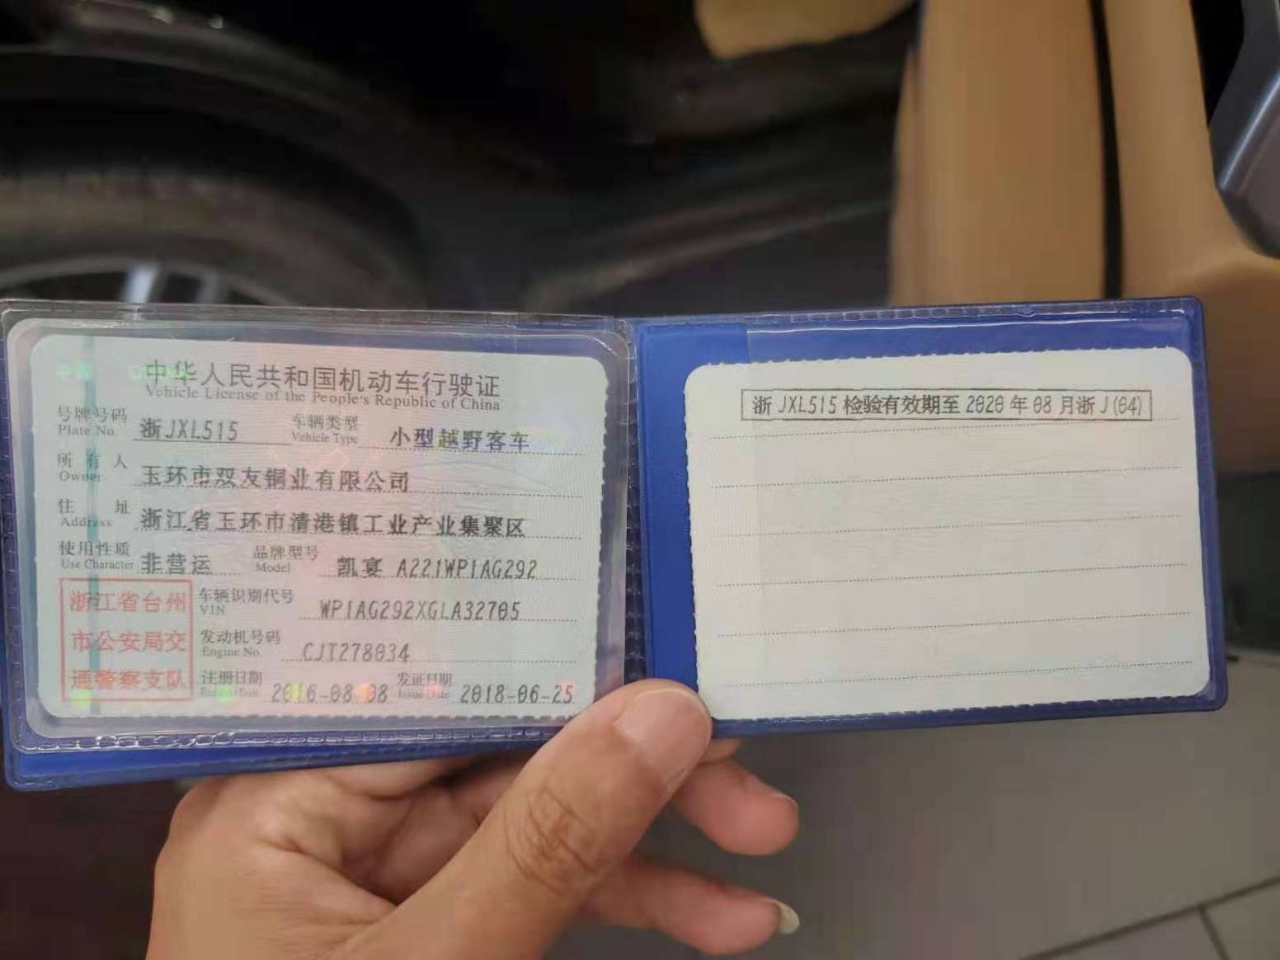 中华人民共和国机动车行驶证
Vehicle License of the People's Republic of China
号牌号码 浙JXL515 车辆类型 小型越野客车
Plate No. Vehicle Type
所有人 玉环市双友铜业有限公司
Owner
住址 浙江省玉环市清港镇工业产业集聚区
Address
使用性质 非营运 品牌型号 凯宴 A221WP1AG292
Use Character Model
浙江省台州
市公安局交
通警察支队
车辆识别代号 WP1AG292XGLA32705
VIN
发动机号码 CJT278034
Engine No.
注册日期 2016-08-08 发证日期 2018-06-25
Register Date Issue Date
浙JXL515 检验有效期至 2020 年 08 月浙J(04)